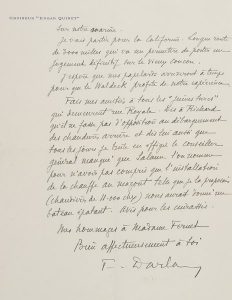 CROISEUR "EDGAR QUINET"
sur notre marine.
Je vais partir pour la Californie. Longue route
de 2000 milles qui va me permettre de porter un
jugement définitif sur le vieux coucou.
J'espère que mes papelards arriveront à temps
pour que le Waldeck profite de notre expérience
Fais mes amitiés à tous les "frères"
qui demeurent rue Royale. Dis à Richard
qu'il ne fasse pas d'opposition au débarquement
des chaudières arrière et dis lui aussi que
tous les jours je traite en effigie le conseiller
général manqué que Salaun
pour n'avoir pas compris que l'installation
de la chauffe au mazout telle que je la proposais
(chaudières de 11.000 chx) nous aurait donné un
bateau épatant. Avis pour les cuirassés.
Mes hommages à Madame
Bien affectueusement à toi
F. Darlan